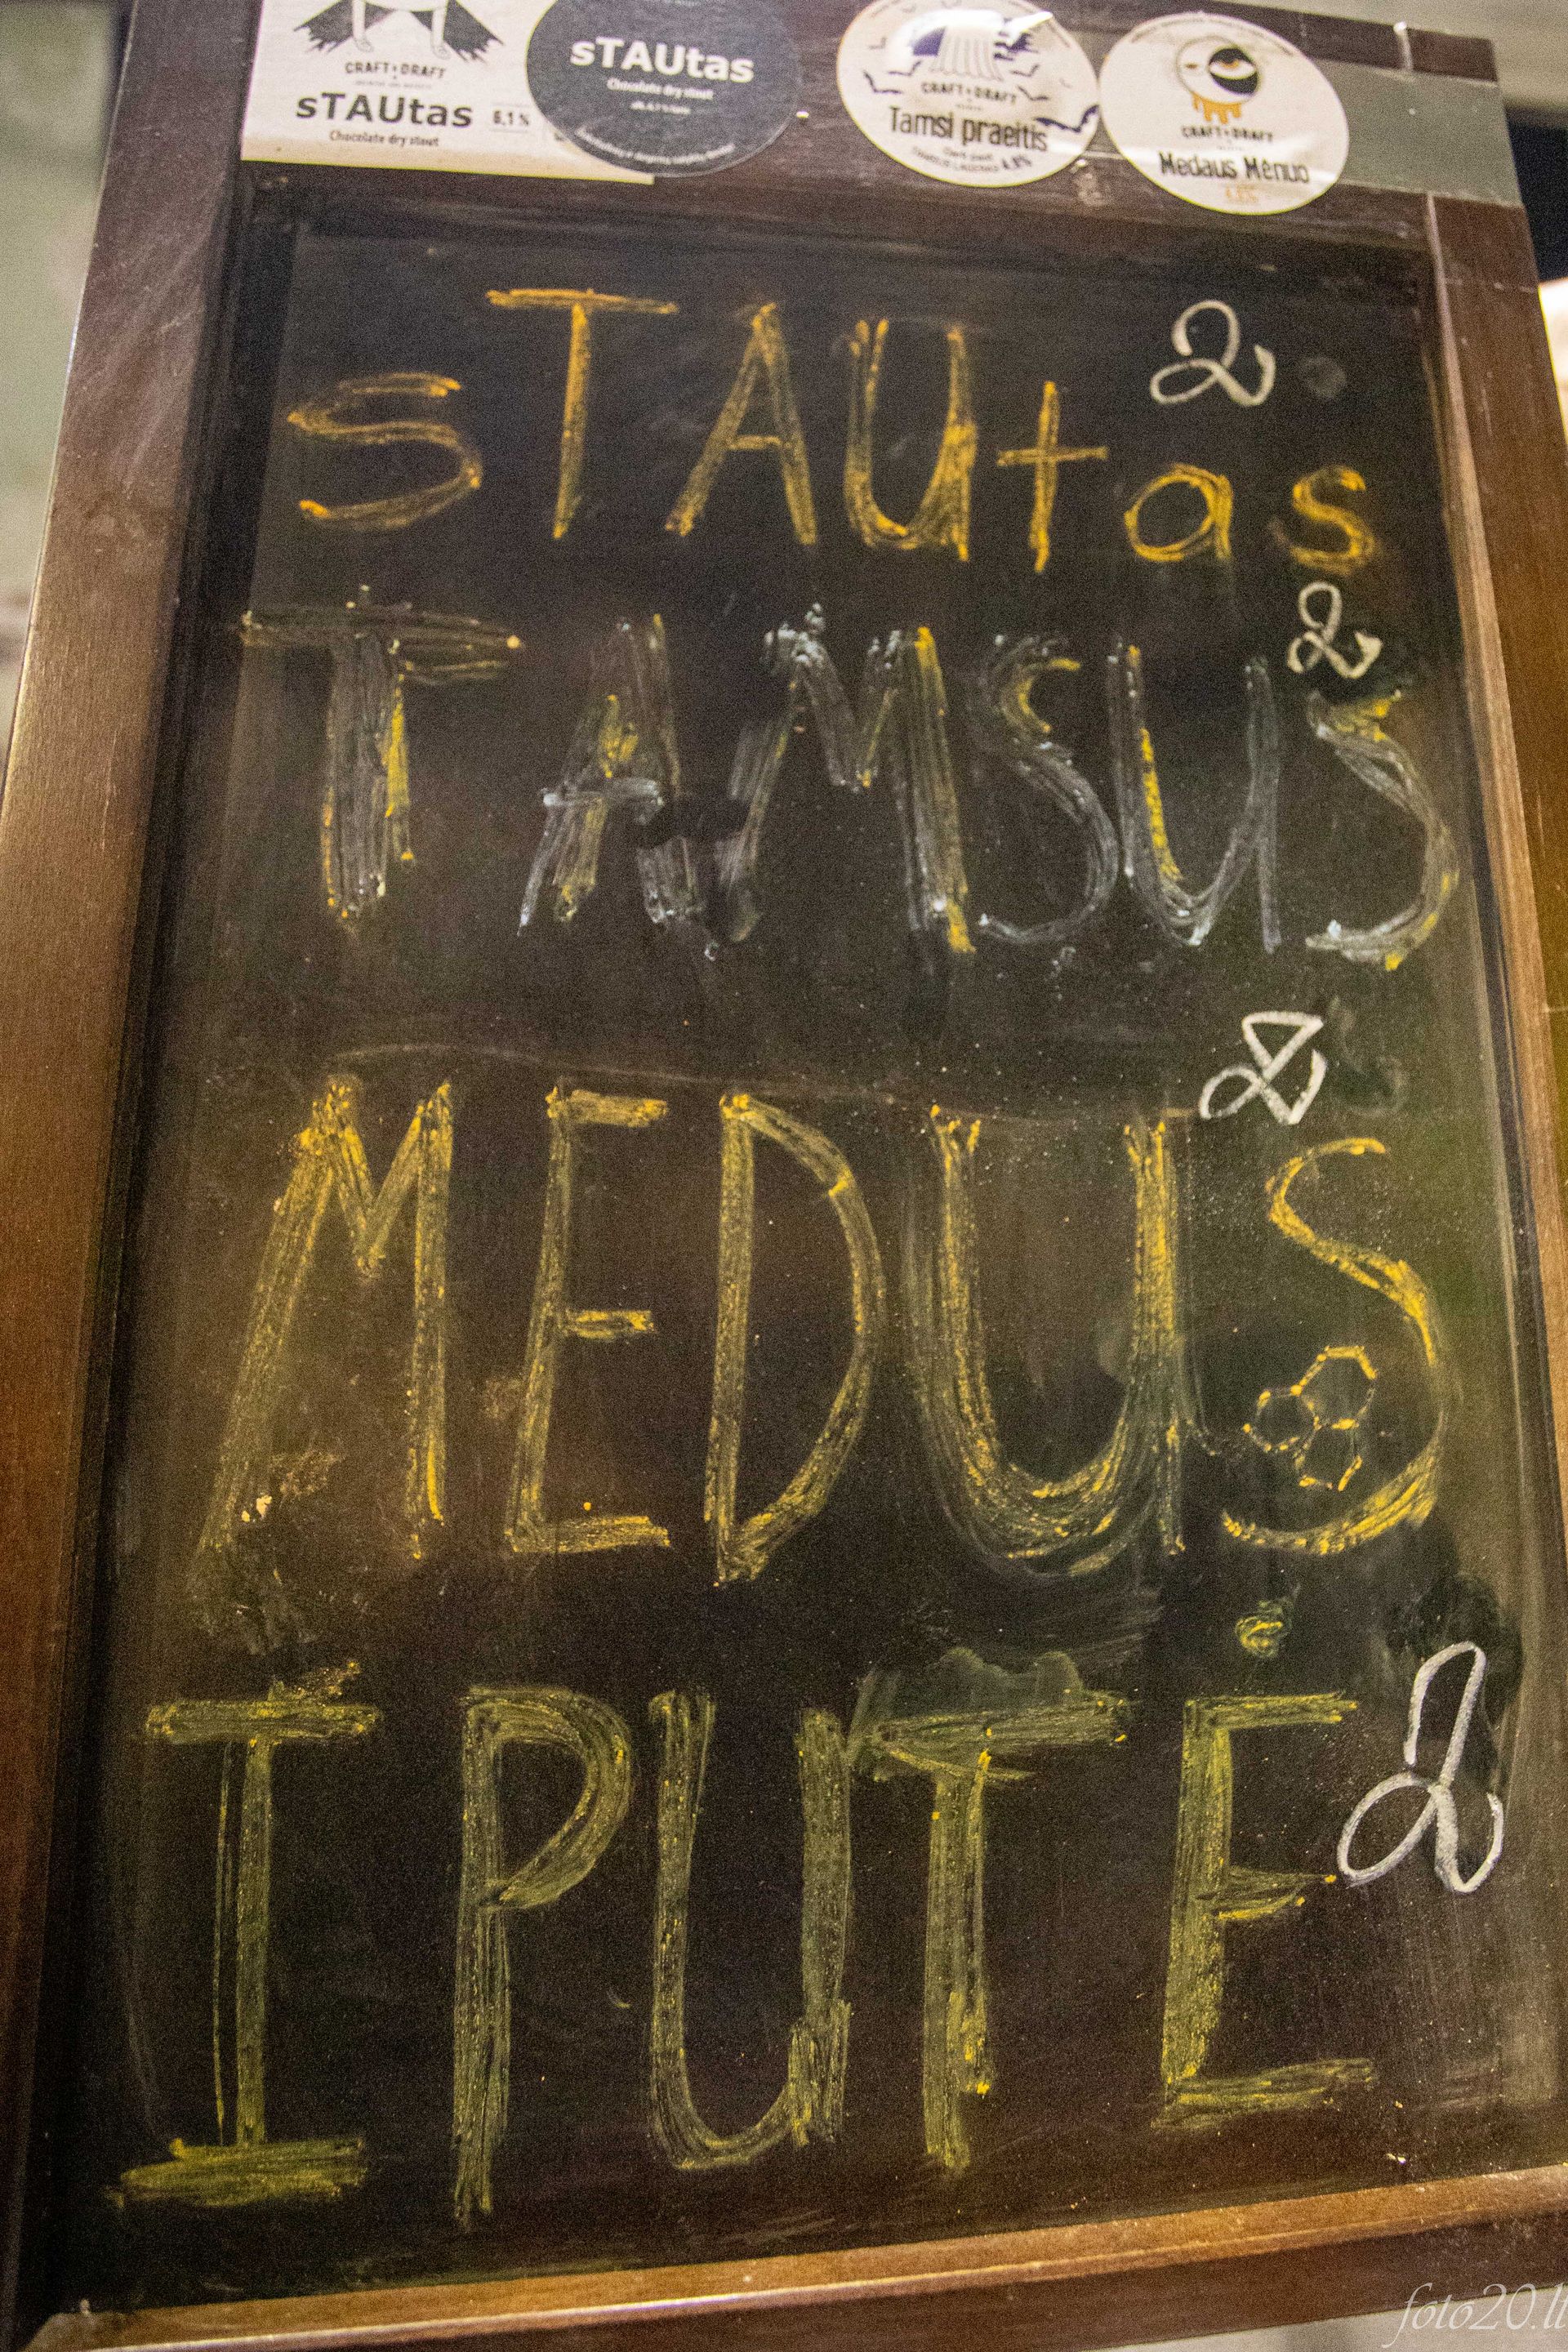 CRAFT+DRAFT
sTAUtas 6,1%
Chocolate dry stout
sTAUtas
Chocolate dry stout
CRAFT+DRAFT
Tamsi praeitis
CRAFT+DRAFT
Medaus Mėnuo
sTAUtas 2
TAMSUS 2
MEDUS 2
IPUTĖ 2
foto20.lt